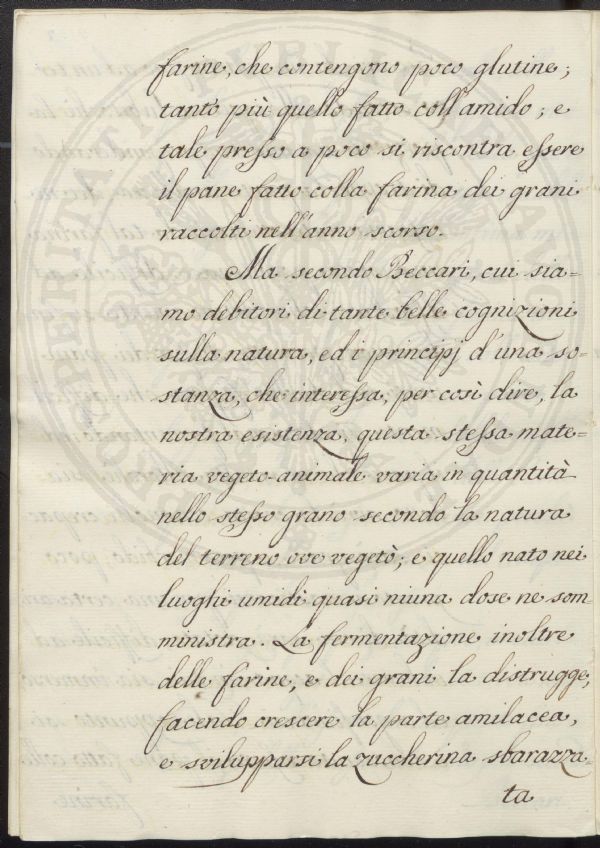 farine, che contengono poco glutine;
tanto più quello fatto coll'amido; e
tale presso a poco si riscontra essere
il pane fatto colla farina dei grani
raccolti nell'anno scorso.
Ma secondo Beccari, cui sia=
mo debitori di tante belle cognizioni
sulla natura, ed i principj d'una so=
stanza, che interessa, per così dire, la
nostra esistenza, questa stessa mate=
ria vegeto-animale varia in quantità
nello stesso grano secondo la natura
del terreno ove vegetò; e quello nato nei
luoghi umidi quasi niuna dose ne som=
ministra. La fermentazione inoltre
delle farine, e dei grani la distrugge,
facendo crescere la parte amilacea,
e svilupparsi la zuccherina sbarazza=
ta